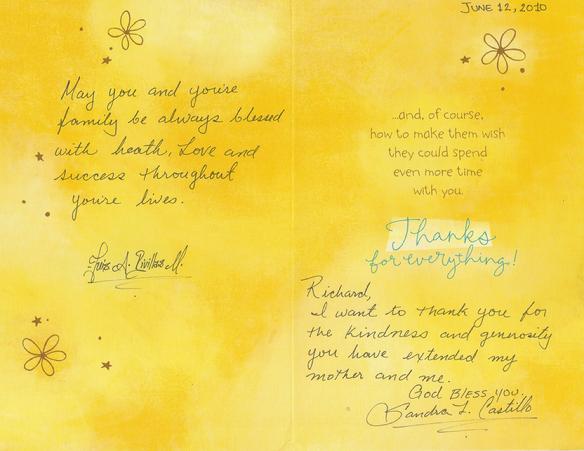 May you and you're
family be always blessed
with heath, Love and
success throughout
you're lives.
JUNE 12, 2010
...and, of course,
how to make them wish
they could spend
even more time
with you.
Thanks
for everything!
Richard,
I want to thank you for
the kindness and generosity
you have extended my
mother and me.
God Bless you.
Sandra L. Castillo